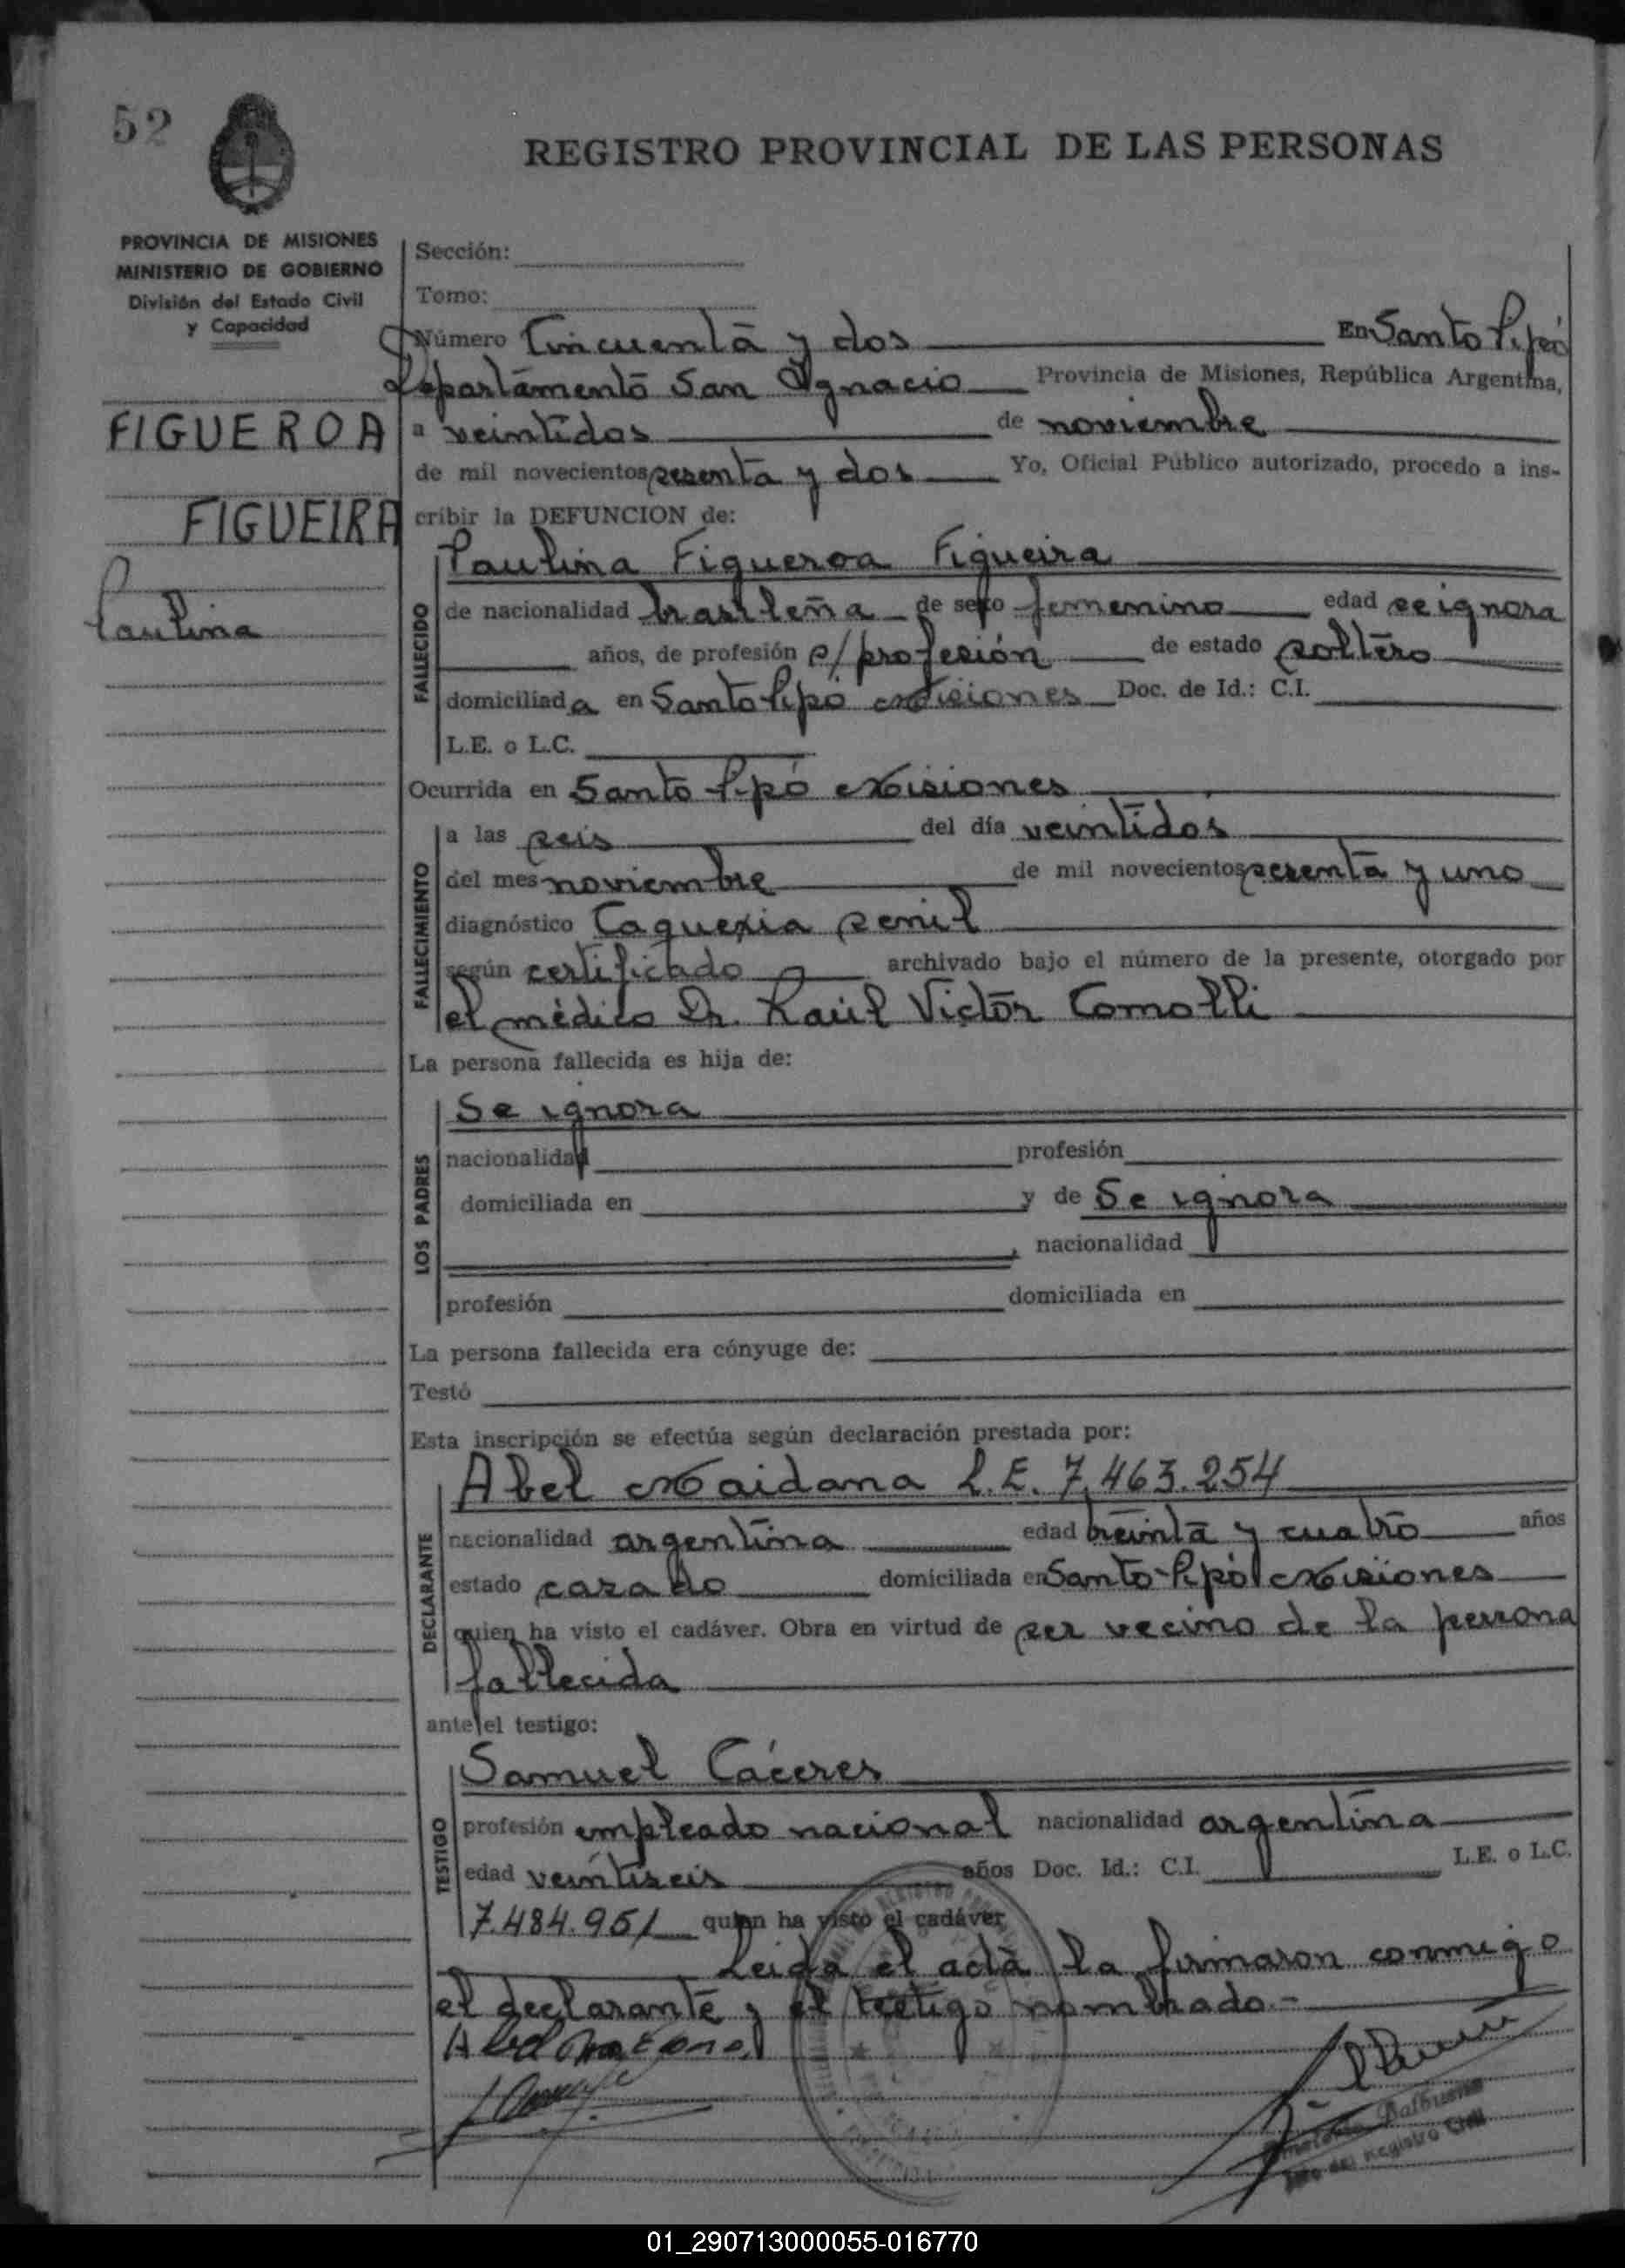 52
REGISTRO PROVINCIAL DE LAS PERSONAS
PROVINCIA DE MISIONES
MINISTERIO DE GOBIERNO
División del Estado Civil
y Capacidad
FIGUEROA
FIGUEIRA
Paulina
Sección:
Tomo:
Número Cincuenta y dos En Santo Pipó
Departamento San Ignacio Provincia de Misiones, República Argentina,
a veintidos de noviembre
de mil novecientos sesenta y dos Yo, Oficial Público autorizado, procedo a ins-
cribir la DEFUNCION de:
FALLECIDO
Paulina Figueroa Figueira
de nacionalidad brasileña de sexo femenino edad se ignora
años, de profesión s/profesión de estado soltero
domiciliada en Santo Pipó Misiones Doc. de Id.: C.I.
L.E. o L.C.
Ocurrida en Santo Pipó Misiones
FALLECIMIENTO
a las seis del día veintidós
del mes noviembre de mil novecientos sesenta y uno
diagnóstico Caquexia senil
según certificado archivado bajo el número de la presente, otorgado por
el médico Dr. Raúl Victor Comolli
La persona fallecida es hija de:
LOS PADRES
Se ignora
nacionalidad profesión
domiciliada en y de Se ignora
, nacionalidad
profesión domiciliada en
La persona fallecida era cónyuge de:
Testó
Esta inscripción se efectúa según declaración prestada por:
DECLARANTE
Abel Maidana L.E. 7.463.254
nacionalidad argentina edad treinta y cuatro años
estado casado domiciliada en Santo Pipó Misiones
quien ha visto el cadáver. Obra en virtud de ser vecino de la persona
fallecida
ante el testigo:
TESTIGO
Samuel Cáceres
profesión empleado nacional nacionalidad argentina
edad veintiseis años Doc. Id.: C.I. L.E. o L.C.
7.484.951 quien ha visto el cadáver
Leida el acta la firmaron conmigo
el declarante y el testigo nombrado.-
Balbuena
Jefe del Registro Civil
01_290713000055-016770